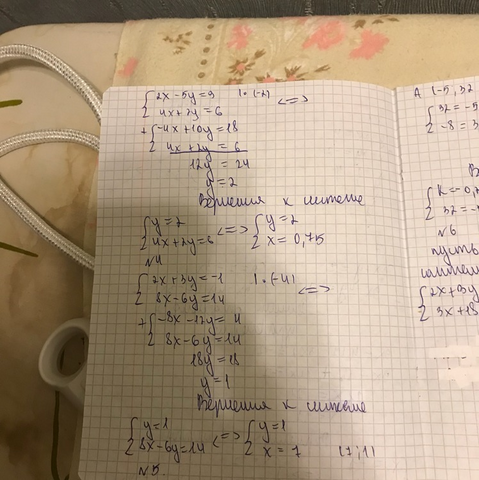 {2x - 5y = 9 | · (-2)
{4x + 2y = 6 <=>
+{-4x + 10y = 18
{4x + 2y = 6
12y = 24
y = 2
Вернемся к системе
{y = 2 <=> {y = 2
{4x + 2y = 6 {x = 0,715
N4
{2x + 3y = -1 | · (-4)
{8x - 6y = 14 <=>
+{-8x - 12y = 4
{8x - 6y = 14
18y = 18
y = 1
Вернемся к системе
{y = 1 <=> {y = 1
{8x - 6y = 14 {x = 7 (7; 1)
N5.
A (-5, 32
{32 = -5
{-8 = 3
{k = -0,
{32 = -
N6
пусть
{2x + 3y
{3x + 18